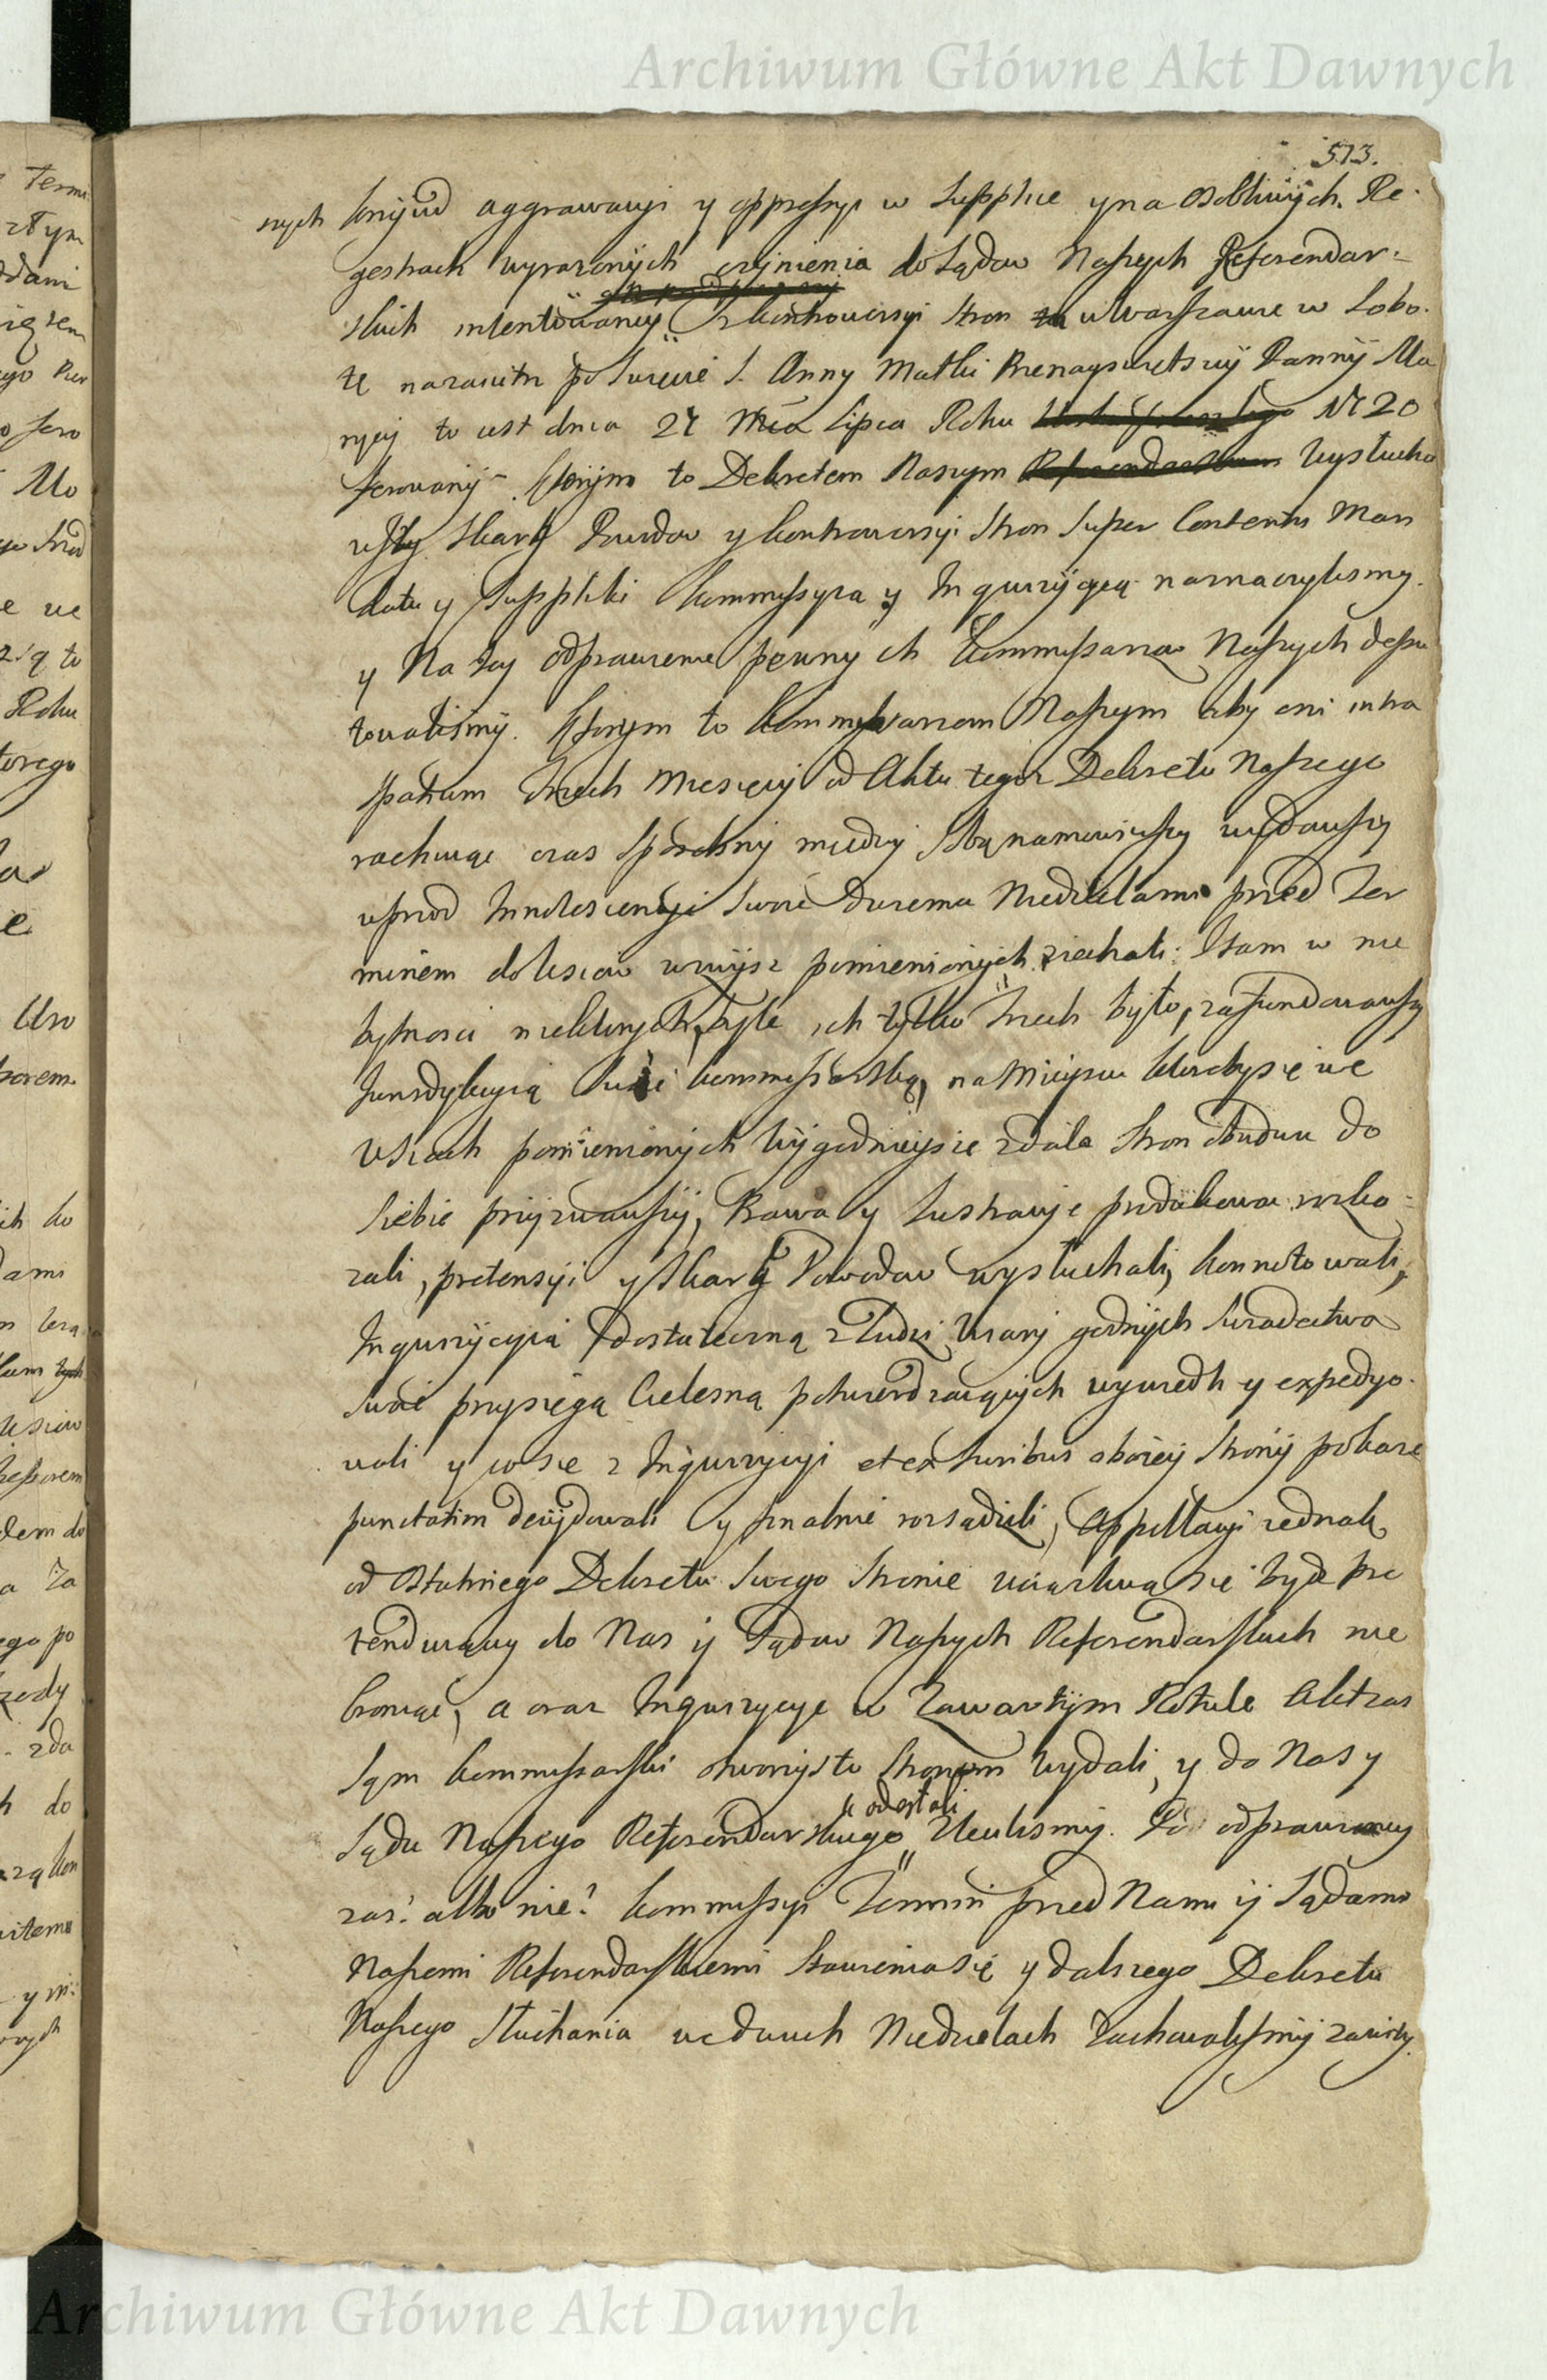 Archiwum Główne Akt Dawnych
513.
nych krzywd aggrawacyi y oppressyi w Supplice y na osobliwych Re-
gestrach wyrazonych czynienia do Sądow Naszych Referendar-
skich intentowaney z kontrowersyi stron w Warszawie w Sobo-
tę nazaiutrz po Swięcie S. Anny Matki Przenayswiętszey Panny Ma
ryey to iest dnia 27 Mca Lipca Roku 1720
ferowany. Ktorym to Dekretem Naszym Wysłucha
wszy Skarg Powodow y kontrowersyi Stron Super Contentis Man
datu y Suppliki kommissyią y Inquizycyą naznaczylismy.
y Na tey odprawienie pewnych kommissarzow Naszych depu
towalismy. Ktorym to kommissarzom Naszym aby oni intra
spatium trzech Miesięcy od Aktu tegoz Dekretu Naszego
rachuiąc czas sposobny miedzy sobą namowiwszy wydawszy
wprzod Innotescencyi swoie dwiema Niedzielami przed Ter
minem do wsiow wzwysz pomienionych ziechali: I tam w nie
bytnosci niektorych, byle ich tylko trzech było, zafundowawszy
Jurysdykcyią swoię kommissarską, na Mieyscu ktore by się we
Wsiach pomienionych wygodnieysze zdało stron obudwu do
siebie przyzwawszy, Prawa y Lustracye produkowac rozka-
zali, pretensyi y Skarg Powodow wysłuchali, konnotowali,
Inquizycyią dostateczną z Ludzi Wiary godnych swiadectwa
swoie przysięgą Cielesną potwierdzaiących wywiedli y expedyo-
wali y co się z Inquizycyi et ex Iuribus oboiey strony pokaze
punctatim decydowali y finalnie rozsądzili, Appellacyi iednak
od ostatniego Dekretu swego stronie uciązliwą się bydz pre
tenduiącey do Nas y Sądow Naszych Referendarskich nie
broniąc, a oraz Inquizycye w Zawartym Rotule Akt zas
sąm kommissarski otworzysto stronom wydali, y do Nas y
odesłali
Sądu Naszego Referendarskiego Zlecilismy. Po odprawioney
zas albo nie? kommissyi Termin przed Nami y Sądami
Naszemi Referendarskiemi stawienia się y dalszego Dekretu
Naszego słuchania we dwuch Niedzielach Zachowalismy zawity.
Archiwum Główne Akt Dawnych